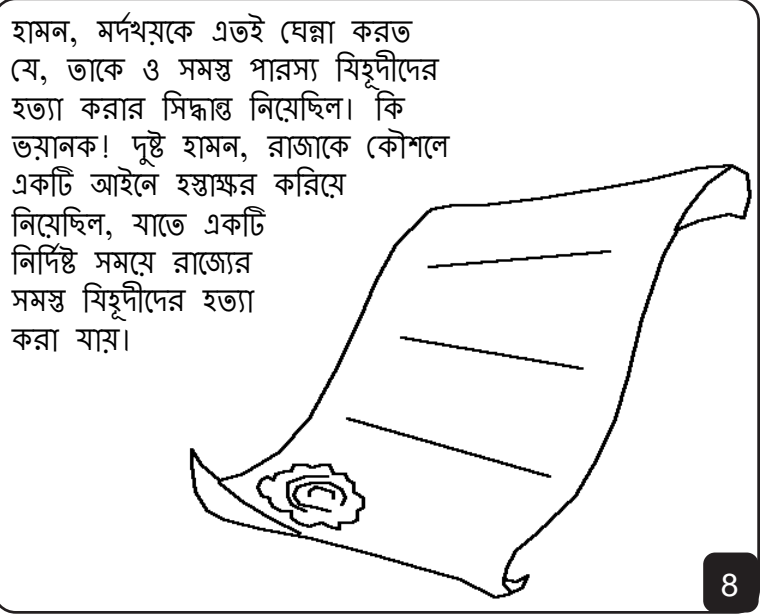 হামন, মর্দখয়কে এতই ঘেন্না করত
যে, তাকে ও সমস্ত পারস্য যিহূদীদের
হত্যা করার সিদ্ধান্ত নিয়েছিল। কি
ভয়ানক! দুষ্ট হামন, রাজাকে কৌশলে
একটি আইনে হস্তাক্ষর করিয়ে
নিয়েছিল, যাতে একটি
নির্দিষ্ট সময়ে রাজ্যের
সমস্ত যিহূদীদের হত্যা
করা যায়।
8